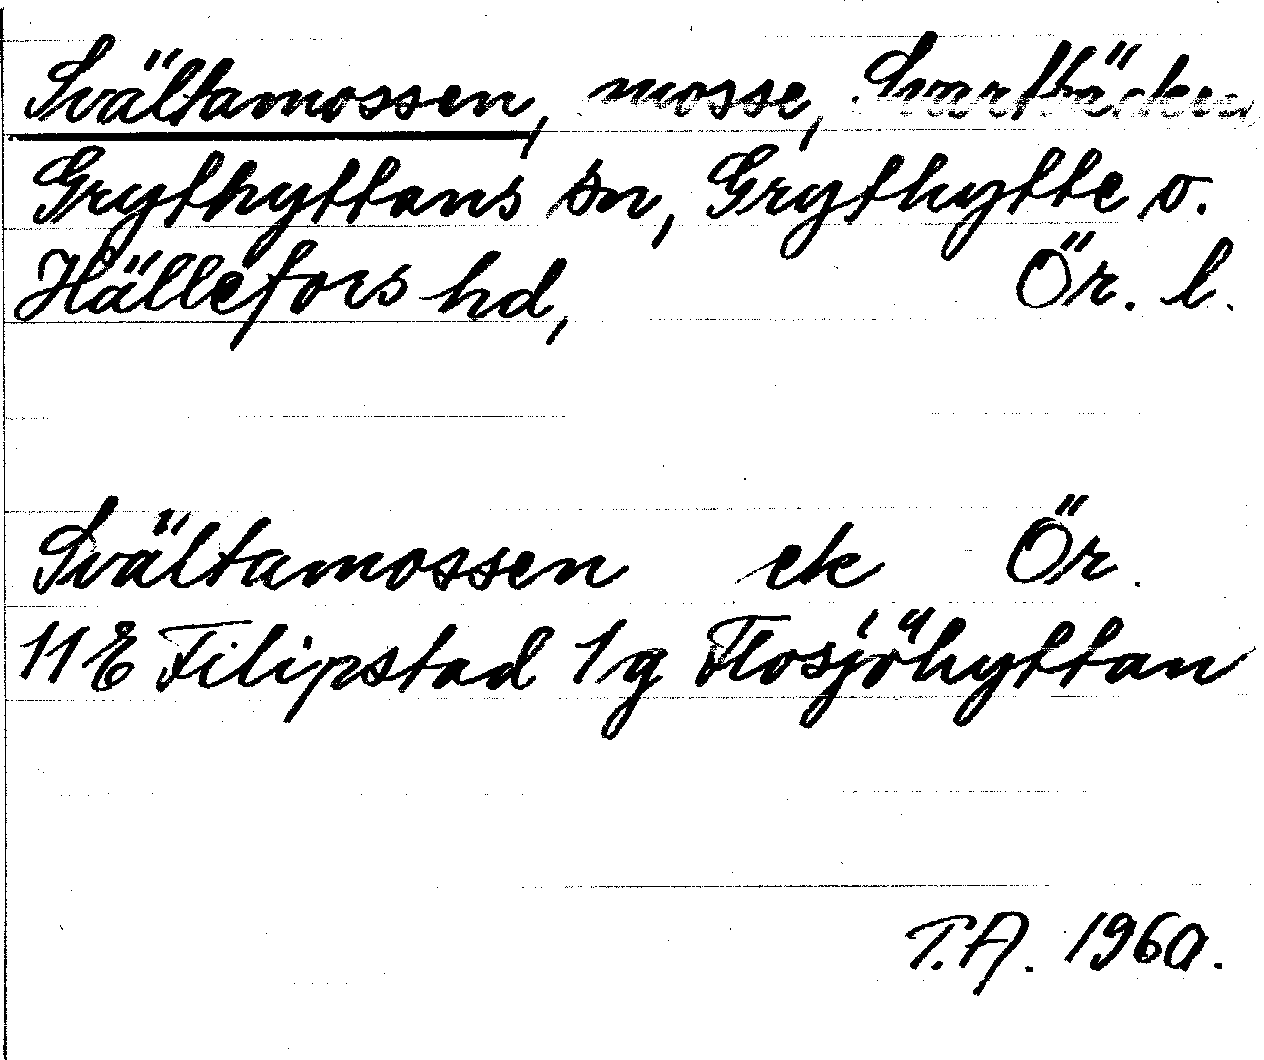 Svältamossen, mosse, Svartbäcken
Grythyttans sn, Grythytte o.
Hällefors hd, Ör. l.
Svältamossen ek Ör.
11E Filipstad 1g Flosjöhyttan
T.A. 1960.